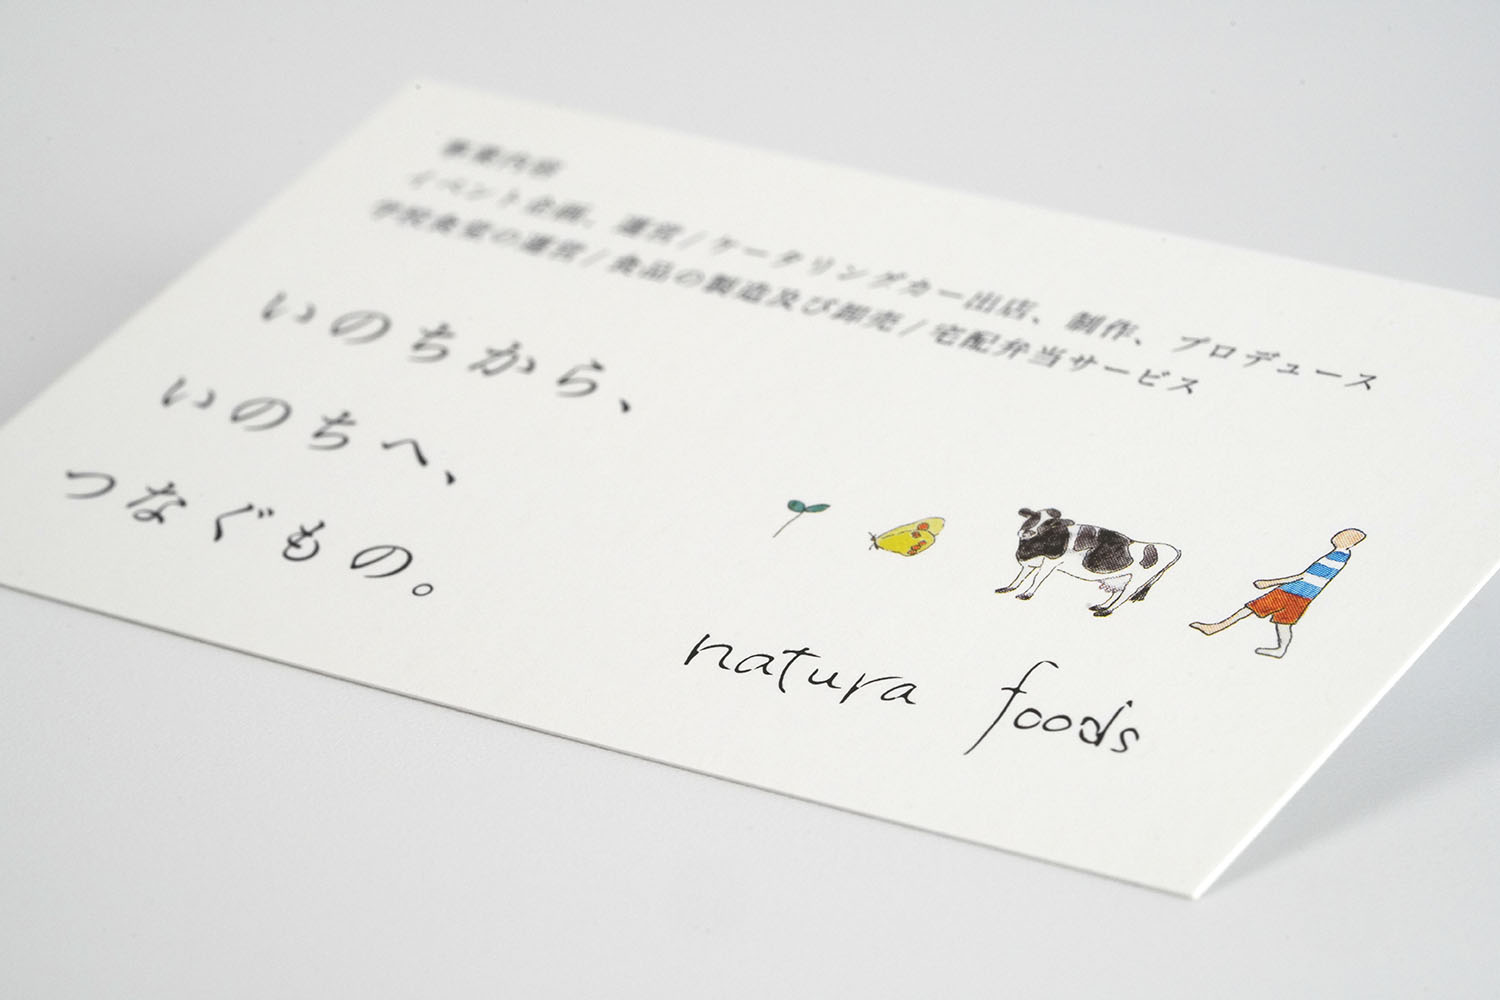 事業内容
イベント企画、運営/ケータリングカー出店、制作、プロデュース
学校食堂の運営/食品の製造及び卸売/宅配弁当サービス
いのちから、
いのちへ、
つなぐもの。
natura foods